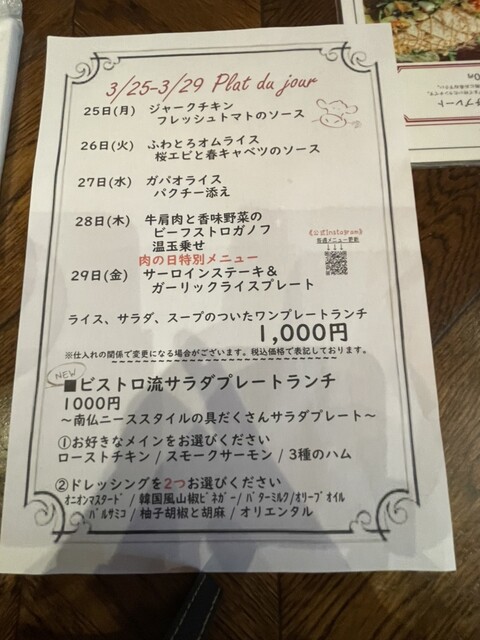 3/25-3/29 Plat du jour
25日(月) ジャークチキン
フレッシュトマトのソース
26日(火) ふわとろオムライス
桜エビと春キャベツのソース
27日(水) ガパオライス
パクチー添え
28日(木) 牛肩肉と香味野菜の
ビーフストロガノフ
温玉乗せ
《公式Instagram》
毎週メニュー更新
肉の日特別メニュー
29日(金) サーロインステーキ&
ガーリックライスプレート
ライス、サラダ、スープのついたワンプレートランチ
1,000円
※仕入れの関係で変更になる場合がございます。税込価格で表記しております。
NEW
■ビストロ流サラダプレートランチ
1000円
~南仏ニーススタイルの具だくさんサラダプレート~
①お好きなメインをお選びください
ローストチキン / スモークサーモン / 3種のハム
②ドレッシングを2つお選びください
オニオンマスタード / 韓国風山椒ビネガー / バターミルク/オリーブオイル
バルサミコ / 柚子胡椒と胡麻 / オリエンタル
プレート